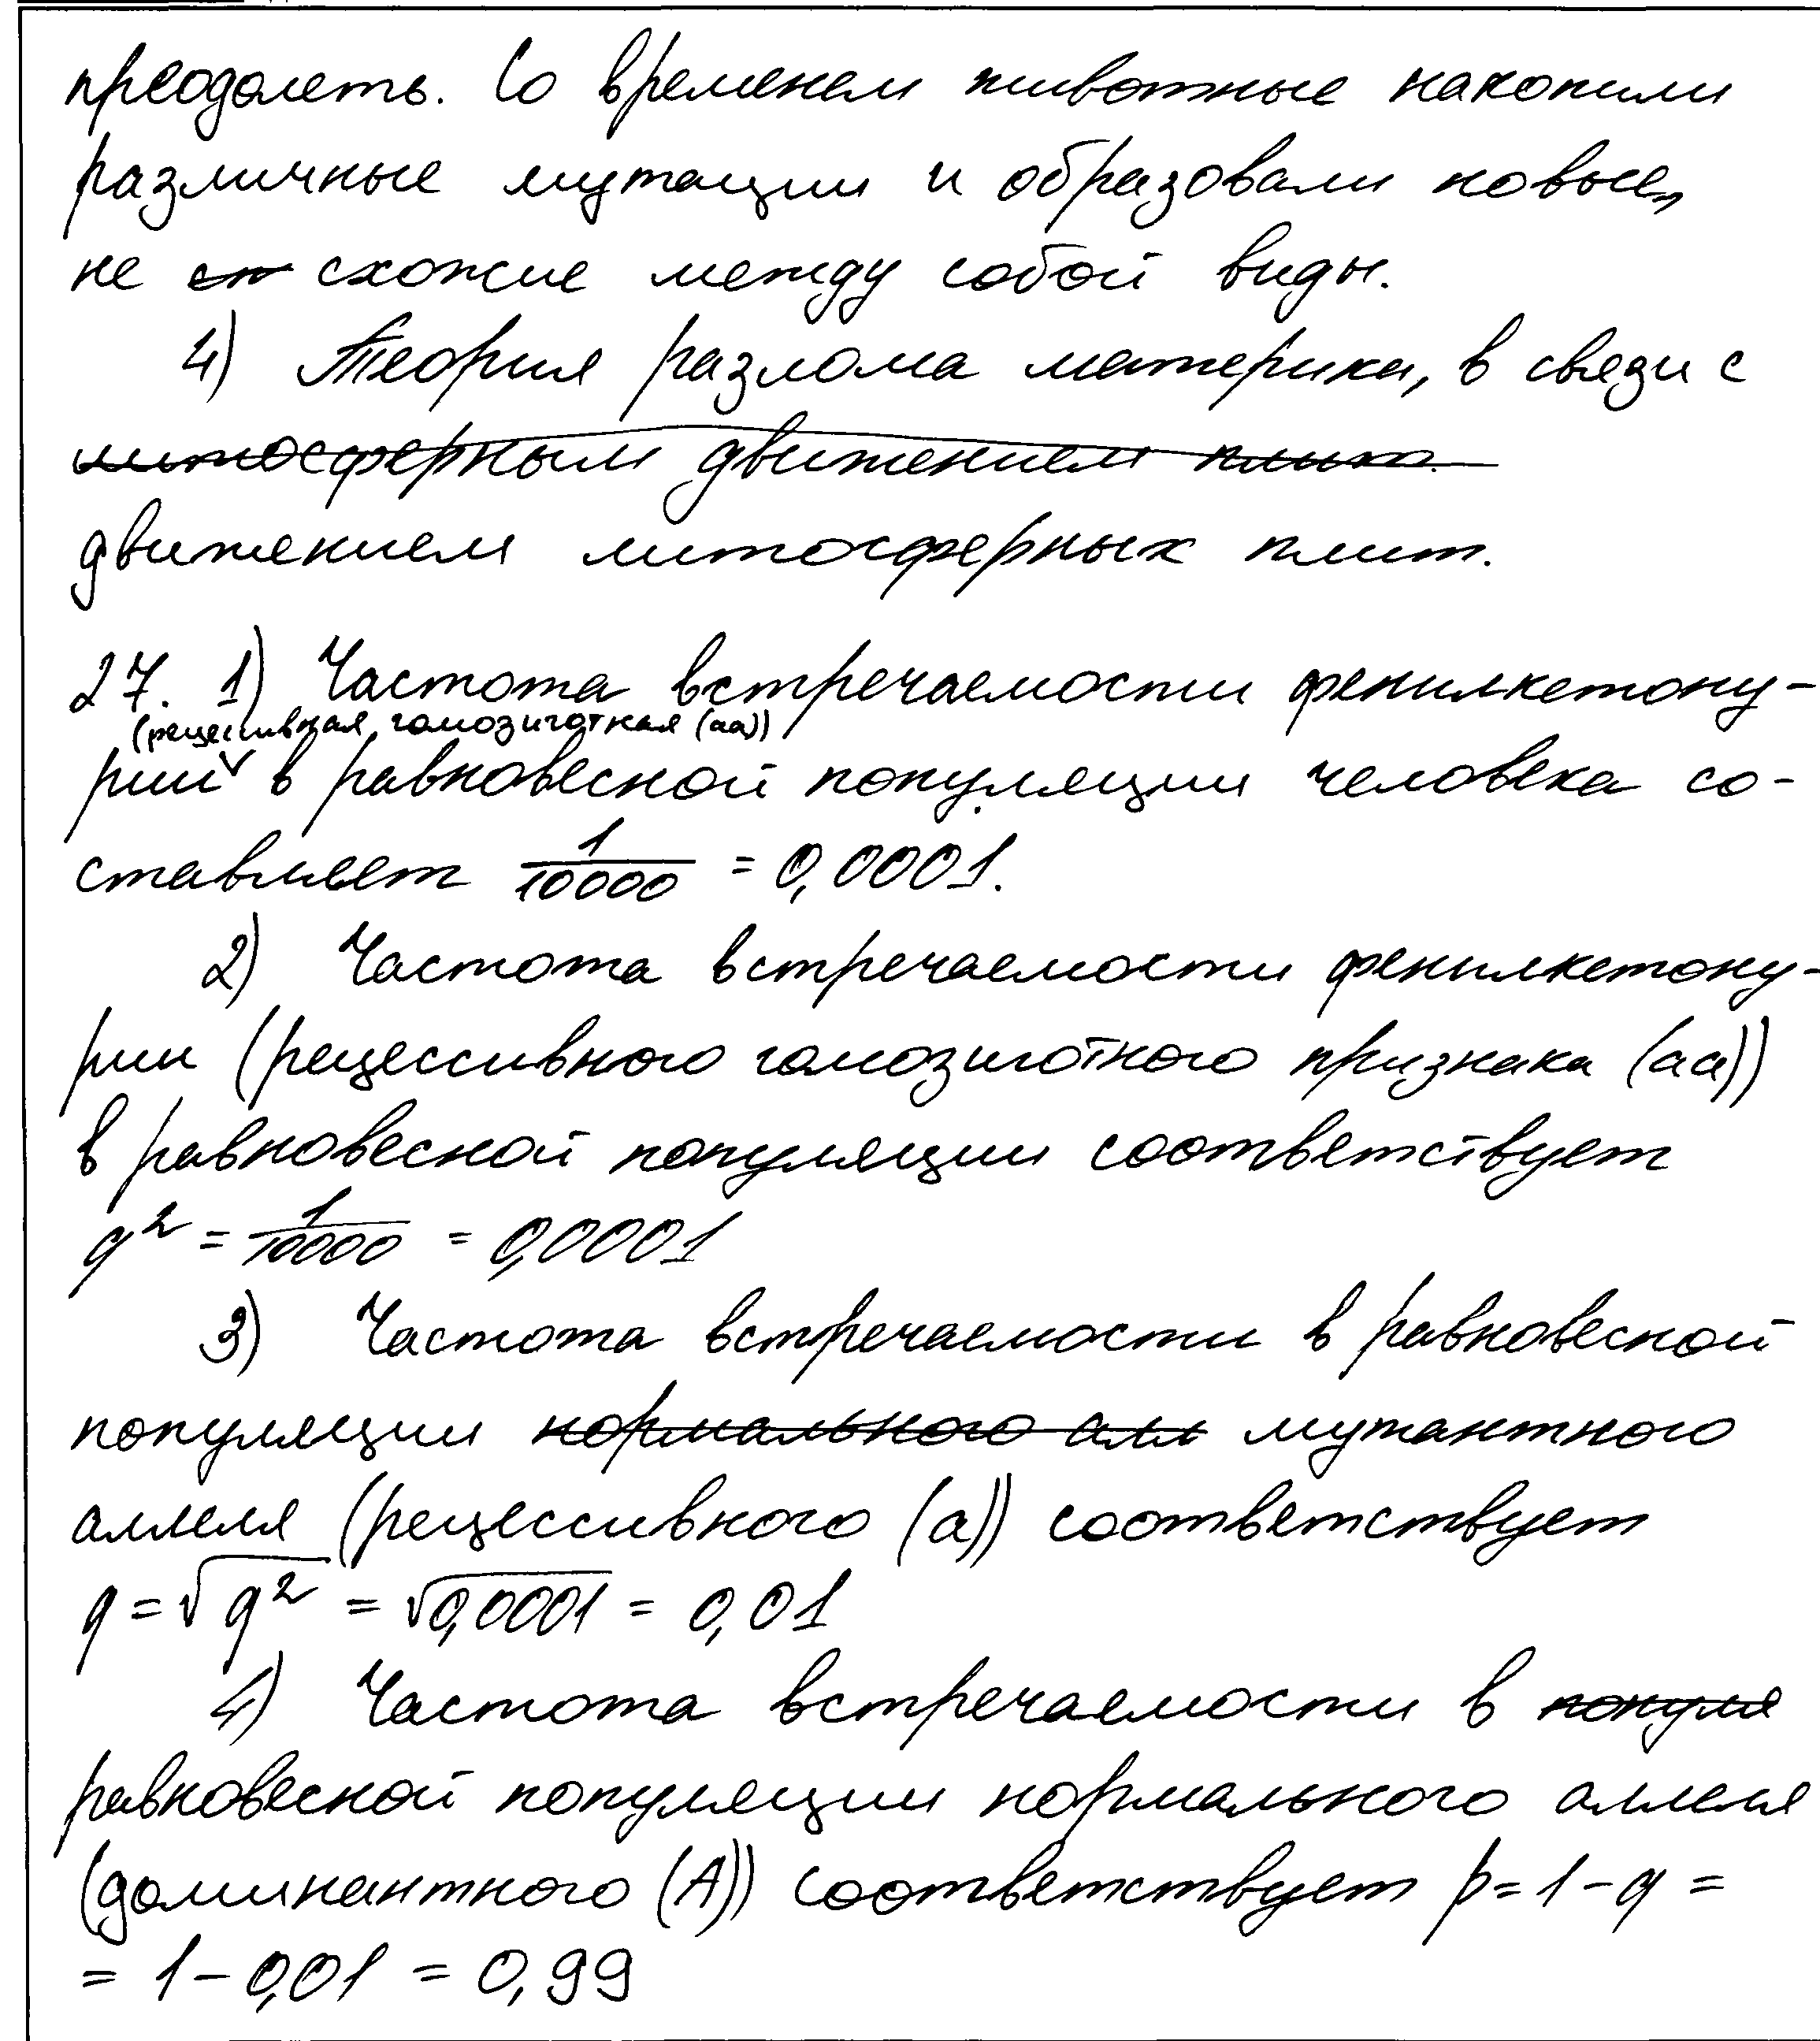 преодолеть. Со временем животные накопили
различные мутации и образовали новые,
не сх схожие между собой виды.
4) Теория разлома материка, в связи с
литосферным движением плит
движением литосферных плит.
27. 1) Частота встречаемости фенилкетону-
(рецессивная гомозиготная (аа))
рии в равновесной популяции человека со-
ставляет 1/10000 = 0,0001.
2) Частота встречаемости фенилкетону-
рии (рецессивного гомозиготного признака (аа))
в равновесной популяции соответствует
q² = 1/10000 = 0,0001
3) Частота встречаемости в равновесной
популяции нормального алл мутантного
аллеля (рецессивного (а)) соответствует
q = √q² = √0,0001 = 0,01
4) Частота встречаемости в популя
равновесной популяции нормального аллеля
(доминантного (А)) соответствует p = 1 - q =
= 1 - 0,01 = 0,99